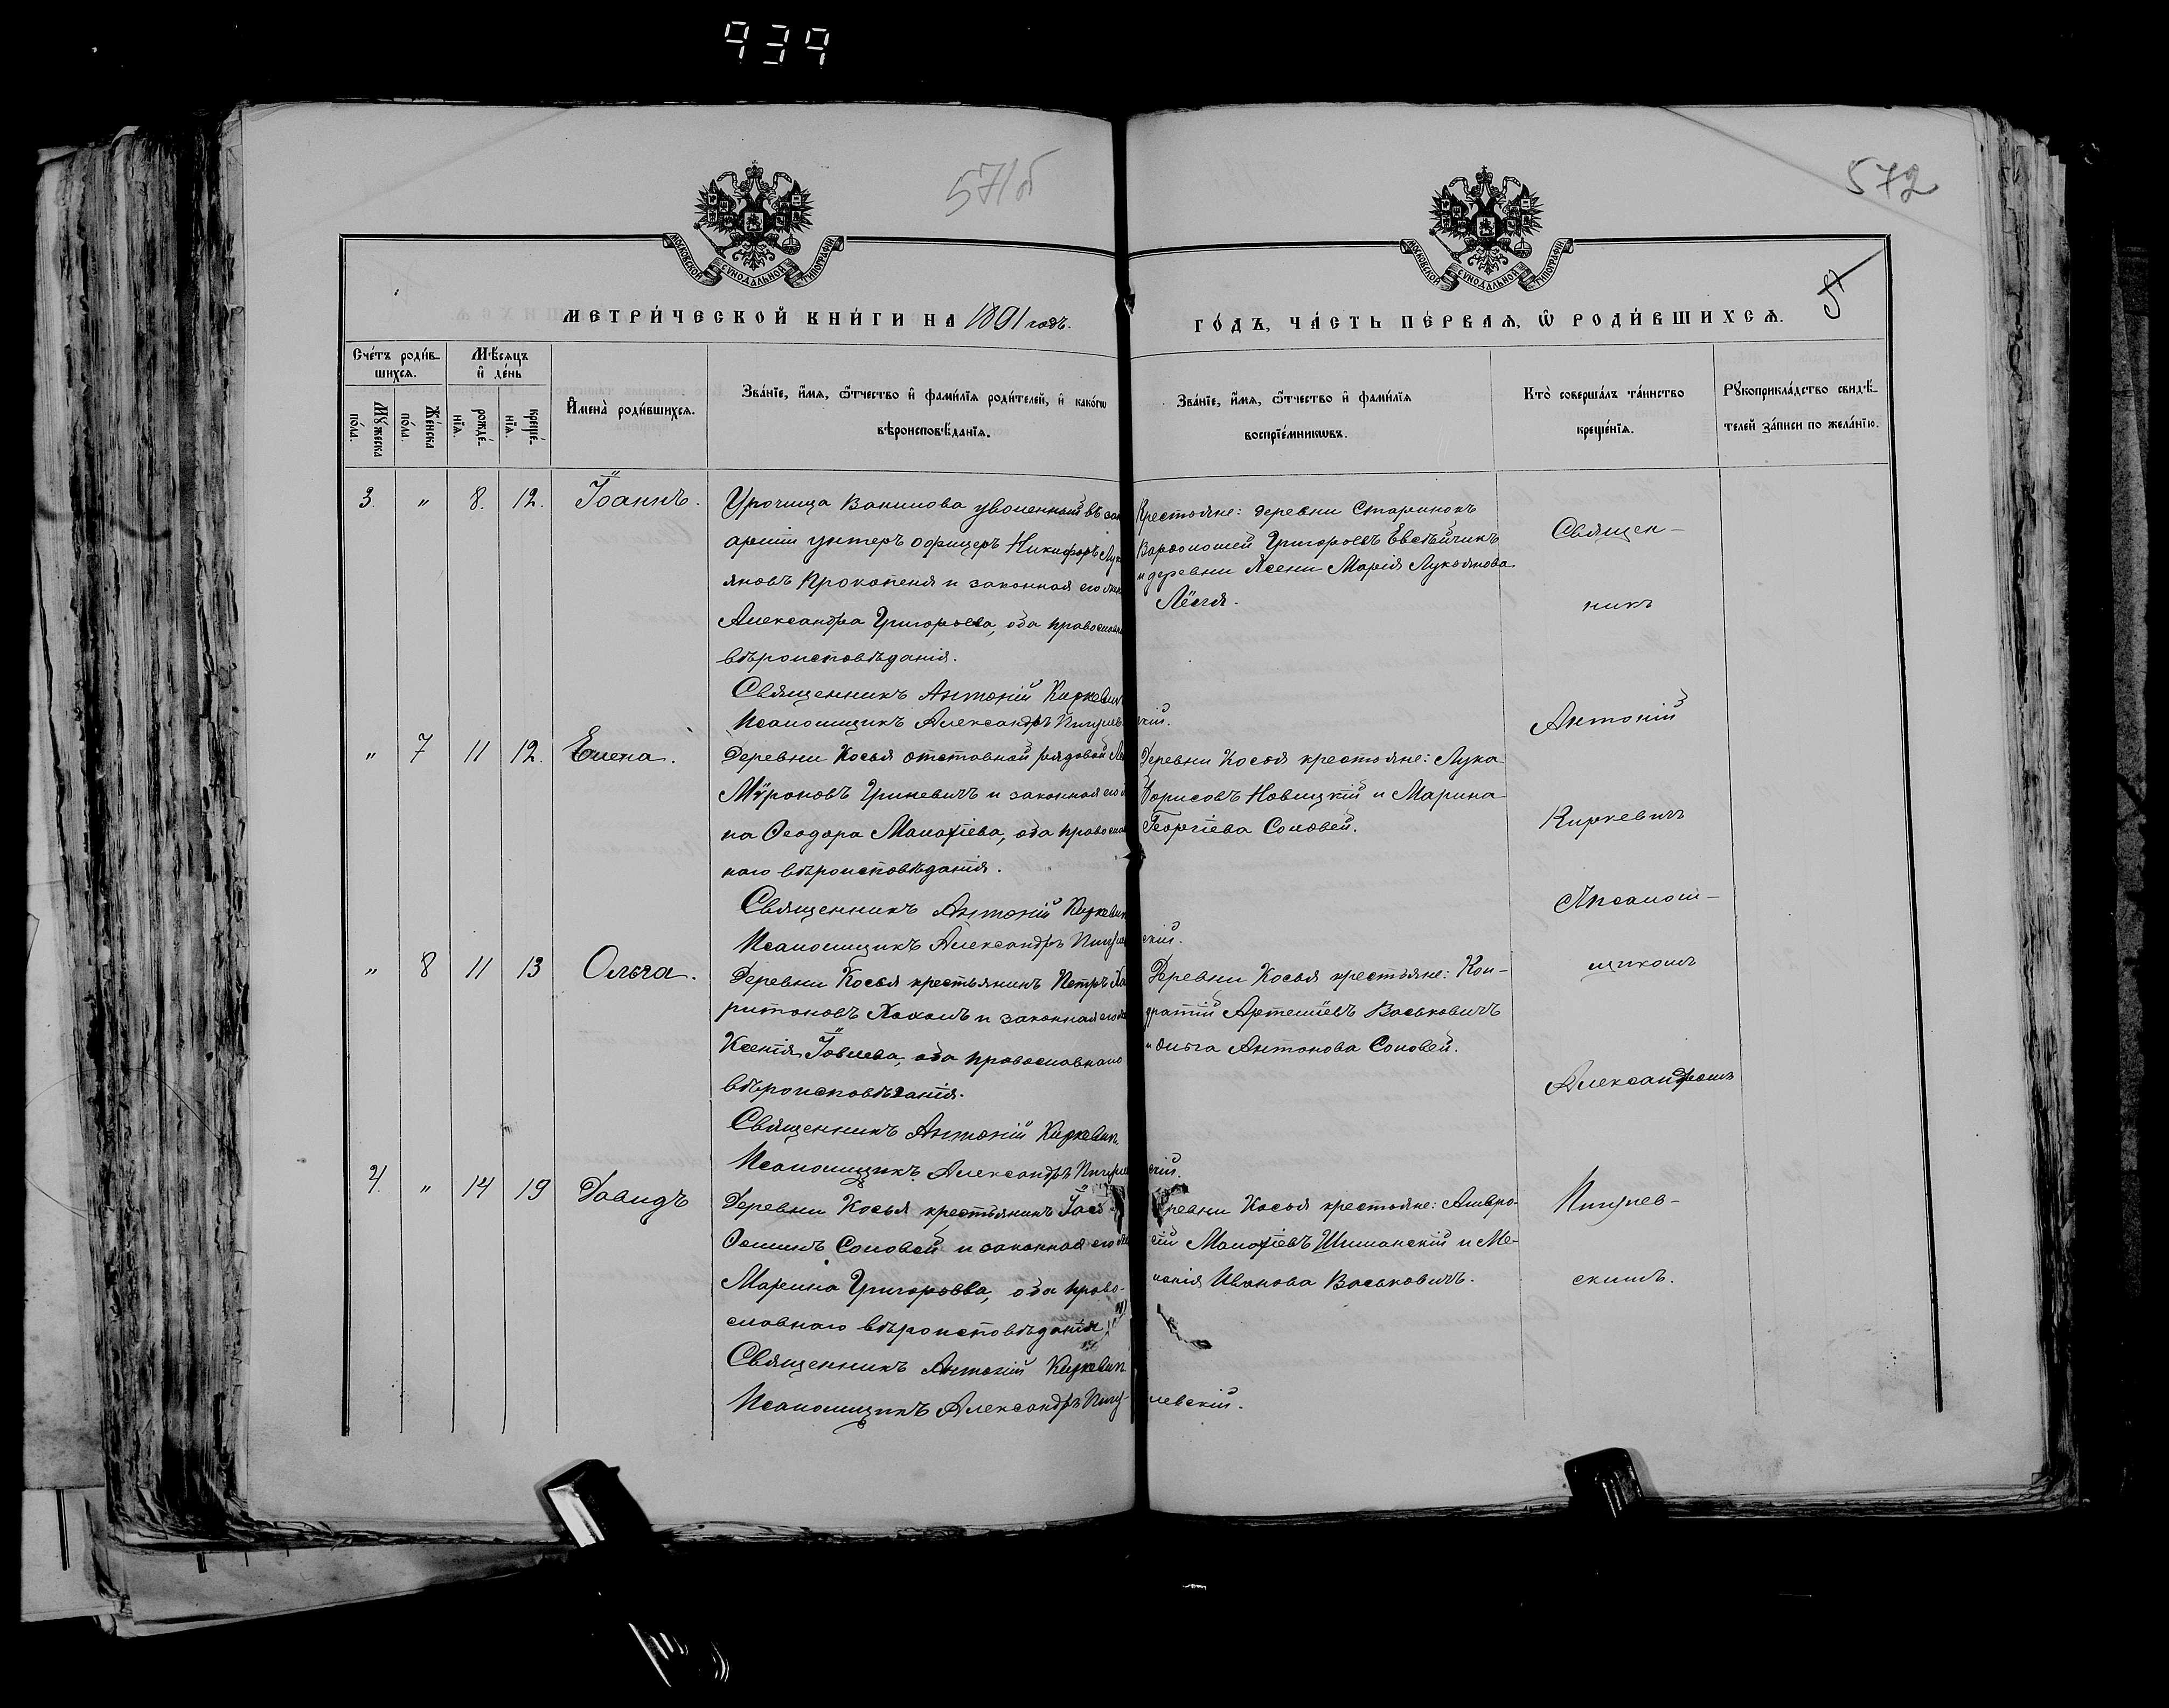 939
571б
572
МОСКОВСКОЙ СѴНОДАЛЬНОЙ ТИПОГРАФІИ
МОСКОВСКОЙ СѴНОДАЛЬНОЙ ТИПОГРАФІИ
МЕТРИ́ЧЕСКОЙ КНИ́ГИ НА 1891 годъ.
ГО́ДЪ, ЧА́СТЬ ПЕ́РВАѦ, Ѡ҆ РОДИ́ВШИХСѦ.
Сче́тъ роди́в-
шихсѧ.
Мѣ́сѧцъ
и҆ де́нь
Мꙋ́жеска
по́ла.
Же́нска
по́ла.
рожде́-
нїѧ.
креще́-
нїѧ.
И҆мена̀ роди́вшихсѧ.
Зва́нїе, и҆́мѧ, ѻ҆́тчество и҆ фами́лїѧ роди́телей, и҆ како́гѡ
вѣроисповѣ́данїѧ.
Зва́нїе, и҆́мѧ, ѻ҆́тчество и҆ фами́лїѧ
воспрїе́мникѡвъ.
Кто̀ соверша́лъ та́инство
креще́нїѧ.
Рꙋкоприкла́дство свидѣ́-
телей за́писи по жела́нїю.
3. " 8. 12. Іоаннъ.
Урочища Вакилова уволенный въ зап
арміи унтеръ офицеръ Никифоръ Лук
яновъ Прокопеня и законная его жен
Александра Григорьева, оба православн
вѣроисповѣданія.
Священникъ Антоній Киркевич
Псаломщикъ Александръ Пигулевскій.
Крестьяне: деревни Старинокъ
Варѳоломей Григорьевъ Евсѣйчикъ
и деревни Ясени Марія Лукьянова
" 7 11 12. Елена.
Деревни Косья отставной рядовой
Мѵроновъ Гриневичъ и законная его
на Ѳеодора Малахіева, оба православ
наго вѣроисповѣданія.
Священникъ Антоній Киркевич
Псаломщикъ Александръ Пигулевскій.
Деревни Косья крестьяне: Лука
Борисовъ Новицкій и Марина
Георгіева Соловей.
" 8 11 13 Ольга.
Деревни Косья крестьянинъ Петръ Ха
ритоновъ Хахомъ и законная его же
Ксенія Іовлева, оба православнаго
вѣроисповѣданія.
Священникъ Антоній Киркевич
Псаломщикъ Александръ Пигулевскій.
Деревни Косья крестьяне: Кон-
дратій Артеміевъ Васьковичъ
и Ольга Антонова Соловей.
4. " 14 19 Давидъ
Деревни Косья крестьянинъ
Ѳоминъ Соловей и законная его же
Марина Григорьева, оба право-
славнаго вѣроисповѣданія
Священникъ Антоній Киркевич
Псаломщикъ Александръ Пигулевскій.
ревни Косья крестьяне: Амвро-
сій Малахіевъ Шиманскій и Ме-
ланія Иванова Васьковичъ.
Священ-
никъ
Антоній
Киркевичъ
съ Псалом-
щикомъ
Александромъ
Пигулев-
скимъ.